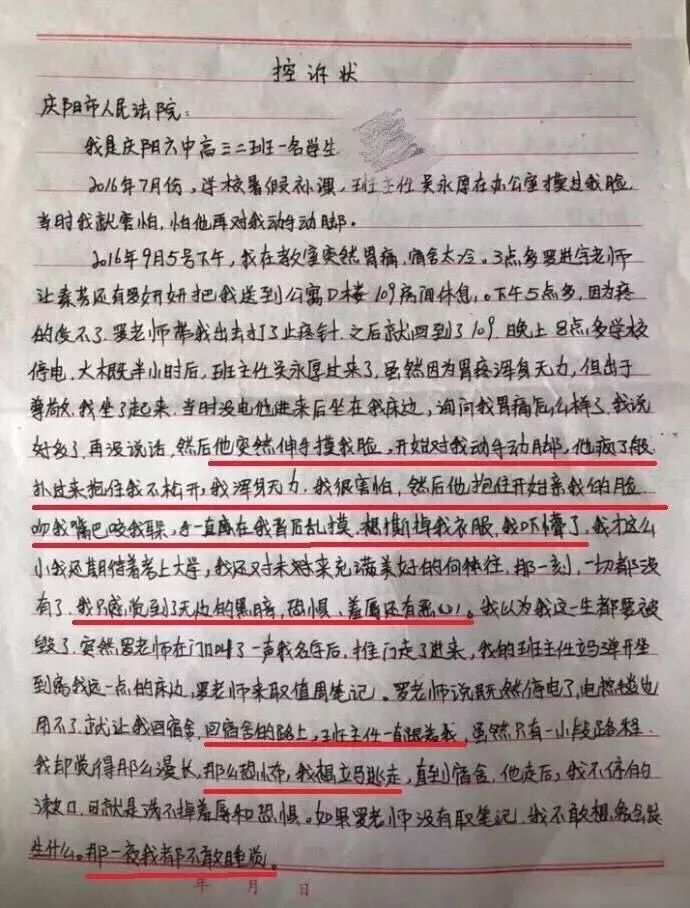 控诉状
庆阳市人民法院:
我是庆阳六中高三二班一名学生
2016年7月份,学校暑假补课,班主任吴永厚在办公室摸过我脸
当时我就害怕,怕他再对我动手动脚。
2016年9月5号下午,我在教室突然胃痛,宿舍太冷。3点多罗进宇老师
让素芳还有罗妍妍把我送到公寓D楼109房间休息。下午5点多,因为疼
的受不了.罗老师带我出去打了止疼针.之后就回到了109.晚上8点多学校
停电.大概半小时后,班主任吴永厚过来了,虽然因为胃疼浑身无力,但出于
尊敬.我坐了起来.当时没电他进来后坐在我床边,询问我胃痛怎么样了.我说
好多了.再没说话.然后他突然伸手摸我脸,开始对我动手动脚,他疯了般
扑过来抱住我不松开,我浑身无力.我很害怕,然后他抱住开始亲我的脸
吻我嘴巴咬我耳朵,手一直在我背后乱摸.想撕掉我衣服,我吓懵了.我才这么
小我还期待着考上大学,我还对未来充满美好的向往,那一刻,一切都没
有了.我只感觉到了无边的黑暗,恐惧、羞辱还有恶心!我以为我这一生都要被
毁了.突然罗老师在门口叫了一声我名字后,推门走了进来,我的班主任立马弹开坐
到离我远一点的床边,罗老师来取值周笔记。罗老师说既然停电了,电热毯也
用不了.就让我回宿舍,回宿舍的路上,班主任一直跟着我,虽然只有一小段路程.
我却觉得那么漫长,那么恐怖,我想立马逃走,直到宿舍.他走后,我不停的
漱口,可就是洗不掉羞辱和恐惧。如果罗老师没有取笔记,我不敢想象会发
生什么。那一夜我都不敢睡觉。
年 月 日